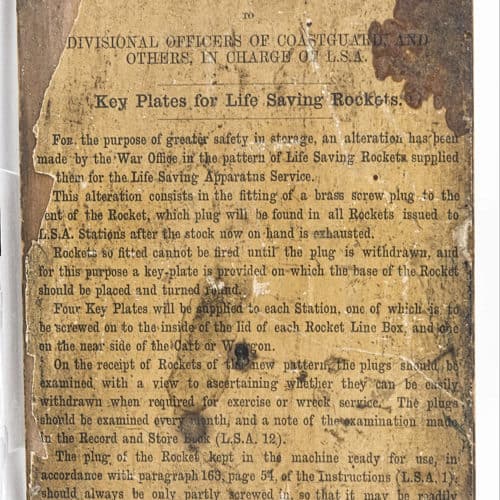 TO
DIVISIONAL OFFICERS OF COASTGUARD, AND
OTHERS, IN CHARGE OF L.S.A.
Key Plates for Life Saving Rockets.
For the purpose of greater safety in storage, an alteration has been
made by the War Office in the pattern of Life Saving Rockets supplied
them for the Life Saving Apparatus Service.
This alteration consists in the fitting of a brass screw plug to the
ent of the Rocket, which plug will be found in all Rockets issued to
L.S.A. Stations after the stock now on hand is exhausted.
Rockets so fitted cannot be fired until the plug is withdrawn, and
for this purpose a key-plate is provided on which the base of the Rocket
should be placed and turned round.
Four Key Plates will be supplied to each Station, one of which is to
be screwed on to the inside of the lid of each Rocket Line Box, and one
on the near side of the Cart or Waggon.
On the receipt of Rockets of the new pattern, the plugs should be
examined with a view to ascertaining whether they can be easily
withdrawn when required for exercise or wreck service. The plugs
should be examined every month, and a note of the examination made
in the Record and Store Book (L.S.A. 12).
The plug of the Rocket kept in the machine ready for use, in
accordance with paragraph 163, page 54, of the Instructions (L.S.A. 1),
should always be only partly screwed in, so that it may be readily